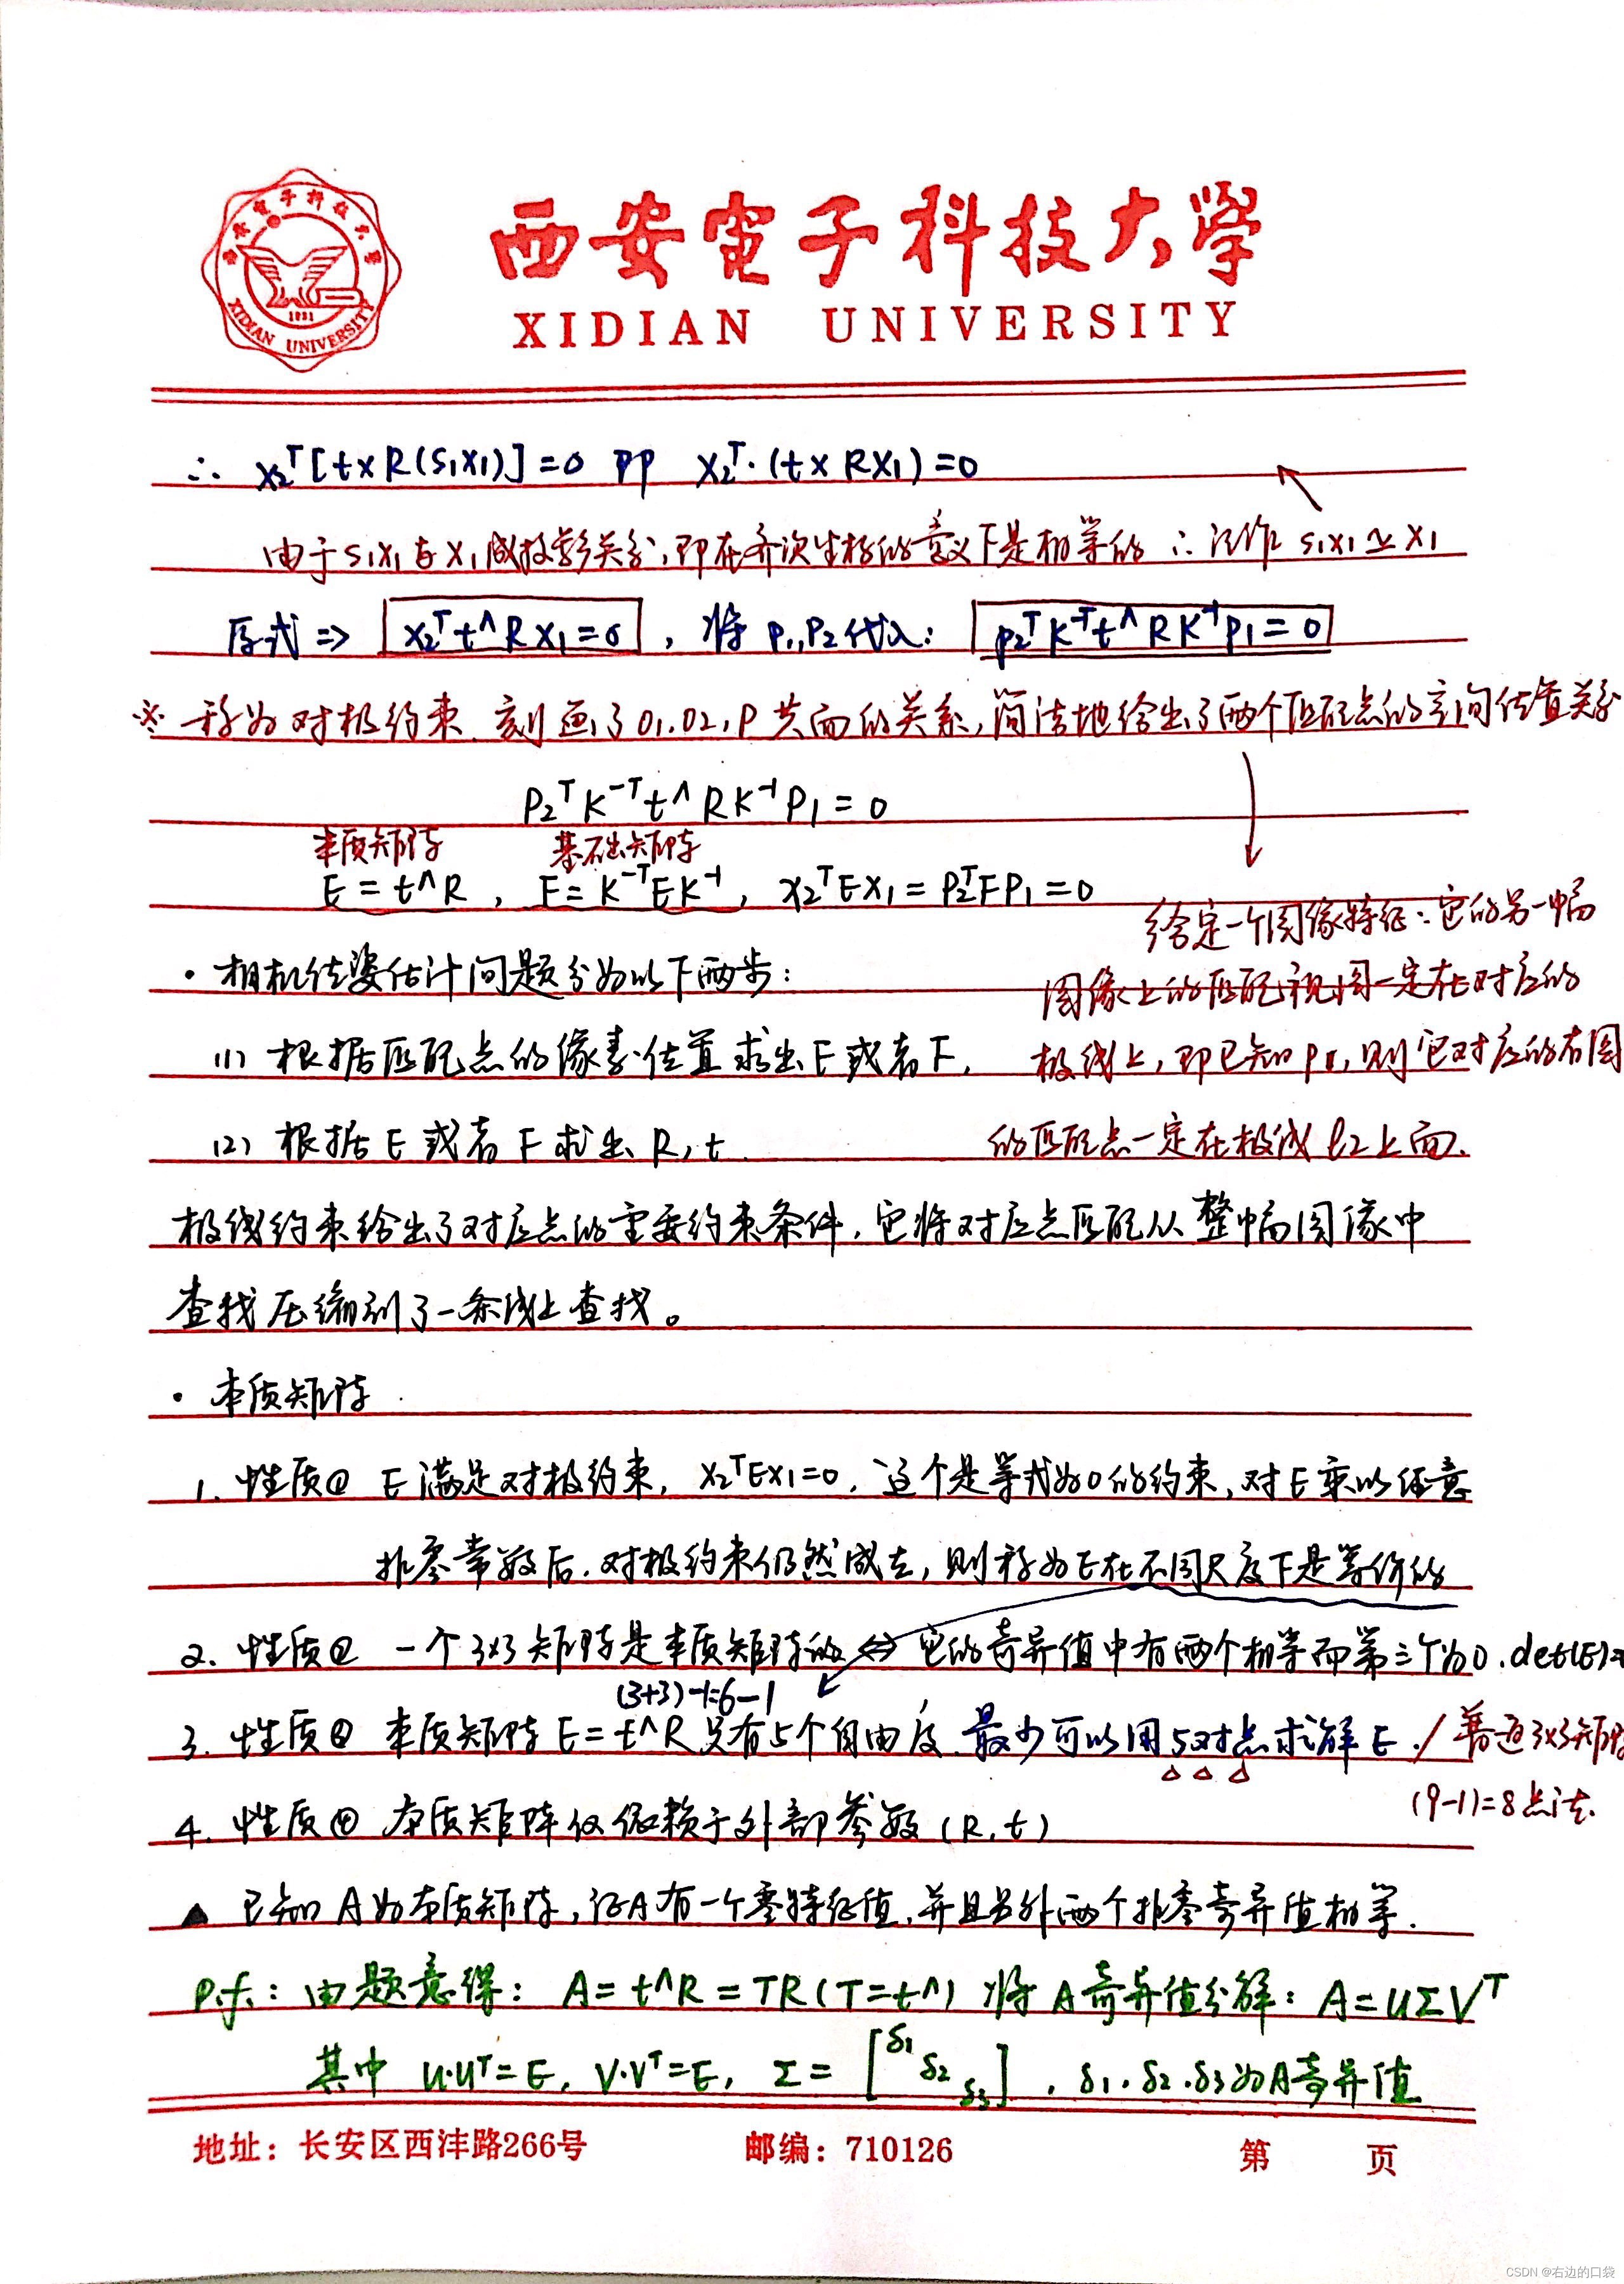 西安電子科技大學
XIDIAN UNIVERSITY
1931
XIDIAN UNIVERSITY
∴ x₂ᵀ[t×R(s₁x₁)]=0 即 x₂ᵀ·(t×Rx₁)=0
由于s₁x₁与x₁成投影关系,即在齐次坐标的意义下是相等的 ∴记作 s₁x₁≃x₁
原式⇒ x₂ᵀt^Rx₁=0 , 将p₁,p₂代入: p₂ᵀK⁻ᵀt^RK⁻¹p₁=0
※ 称为对极约束 刻画了O1.O2,P共面的关系,简洁地给出了两个匹配点的空间位置关系
P₂ᵀK⁻ᵀt^RK⁻¹P₁=0
本质矩阵 基础矩阵
E=t^R , F=K⁻ᵀEK⁻¹, x₂ᵀEx₁=P₂ᵀFP₁=0
给定一个图像特征∴它的另一幅
图像上的匹配视图一定在对应的
极线上,即已知p1,则它对应的右图
的匹配点一定在极线l2上面.
· 相机位姿估计问题分为以下两步:
(1) 根据匹配点的像素位置求出E或者F.
(2) 根据E或者F求出R,t
极线约束给出了对应点的重要约束条件,它将对应点匹配从整幅图像中
查找压缩到了一条线上查找。
· 本质矩阵
1. 性质① E满足对极约束, x₂ᵀEx₁=0, 这个是等式为0的约束,对E乘以任意
非零常数后.对极约束仍然成立,则称为E在不同尺度下是等价的
2. 性质② 一个3×3矩阵是本质矩阵的⇔它的奇异值中有两个相等而第三个为0.det(E)=
(3+3)-1=6-1
3. 性质③ 本质矩阵E=t^R只有5个自由度.最少可以用5对点求解E. / 普通3×3矩阵
(9-1)=8点法.
4. 性质④ 本质矩阵仅依赖于外部参数(R,t)
▲ 已知A为本质矩阵,证A有一个零特征值,并且另外两个非零奇异值相等.
P.f.: 由题意得: A=t^R=TR(T=t^) 将A奇异值分解: A=UΣVᵀ
其中 U·Uᵀ=E, V·Vᵀ=E, Σ=[δ1 δ2 δ3] , δ1.δ2.δ3为A奇异值
地址: 长安区西沣路266号 邮编: 710126 第 页
CSDN @右边的口袋